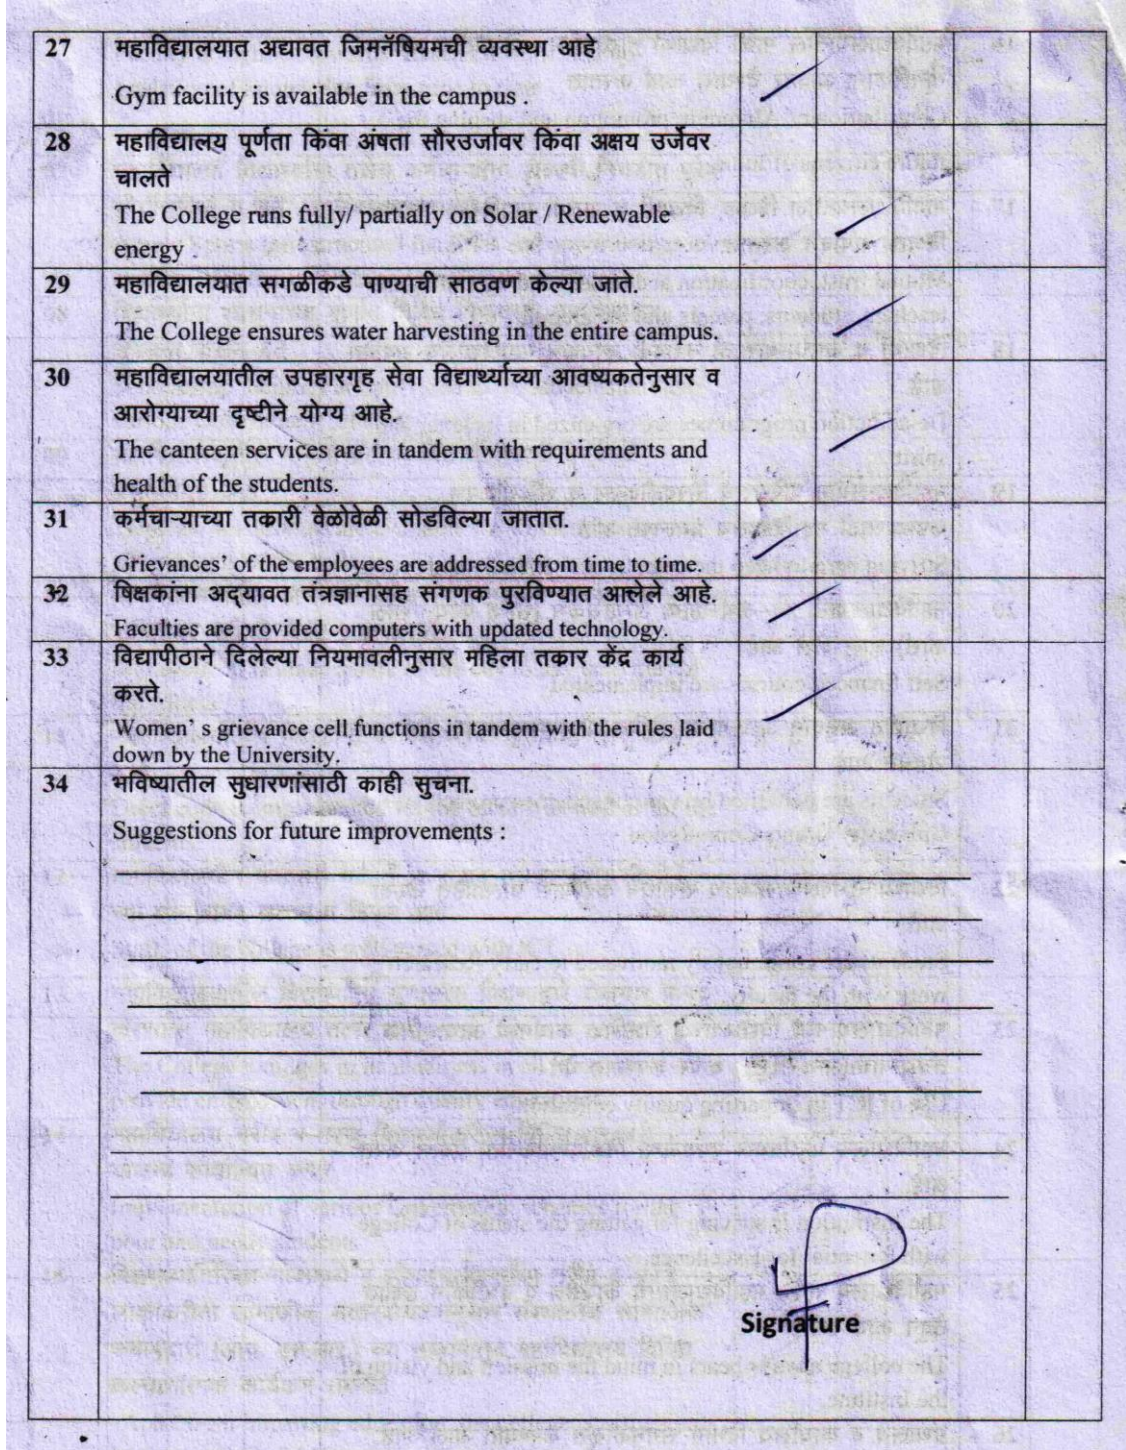 27 महाविद्यालयात अद्यावत जिमनॅषियमची व्यवस्था आहे
Gym facility is available in the campus .
28 महाविद्यालय पूर्णता किंवा अंषता सौरउर्जावर किंवा अक्षय उर्जेवर
चालते
The College runs fully/ partially on Solar / Renewable
energy .
29 महाविद्यालयात सगळीकडे पाण्याची साठवण केल्या जाते.
The College ensures water harvesting in the entire campus.
30 महाविद्यालयातील उपहारगृह सेवा विद्यार्थ्याच्या आवष्यकतेनुसार व
आरोग्याच्या दृष्टीने योग्य आहे.
The canteen services are in tandem with requirements and
health of the students.
31 कर्मचाऱ्याच्या तकारी वेळोवेळी सोडविल्या जातात.
Grievances’ of the employees are addressed from time to time.
32 षिक्षकांना अद्यावत तंत्रज्ञानासह संगणक पुरविण्यात आलेले आहे.
Faculties are provided computers with updated technology.
33 विद्यापीठाने दिलेल्या नियमावलीनुसार महिला तकार केंद्र कार्य
करते.
Women’ s grievance cell functions in tandem with the rules laid
down by the University.
34 भविष्यातील सुधारणांसाठी काही सुचना.
Suggestions for future improvements :
Signature